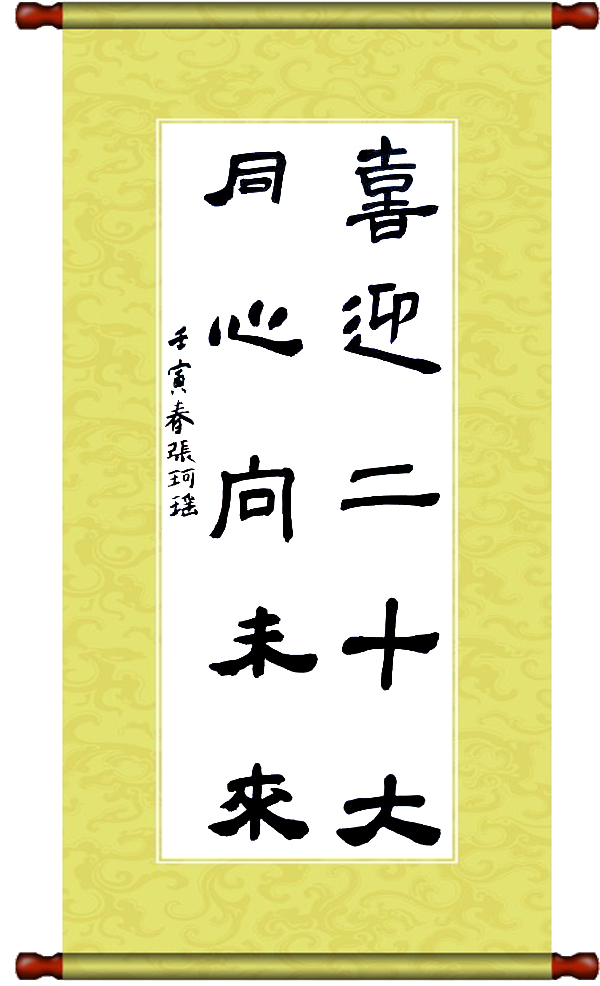 喜迎二十大
同心向未來
壬寅春張珂瑶